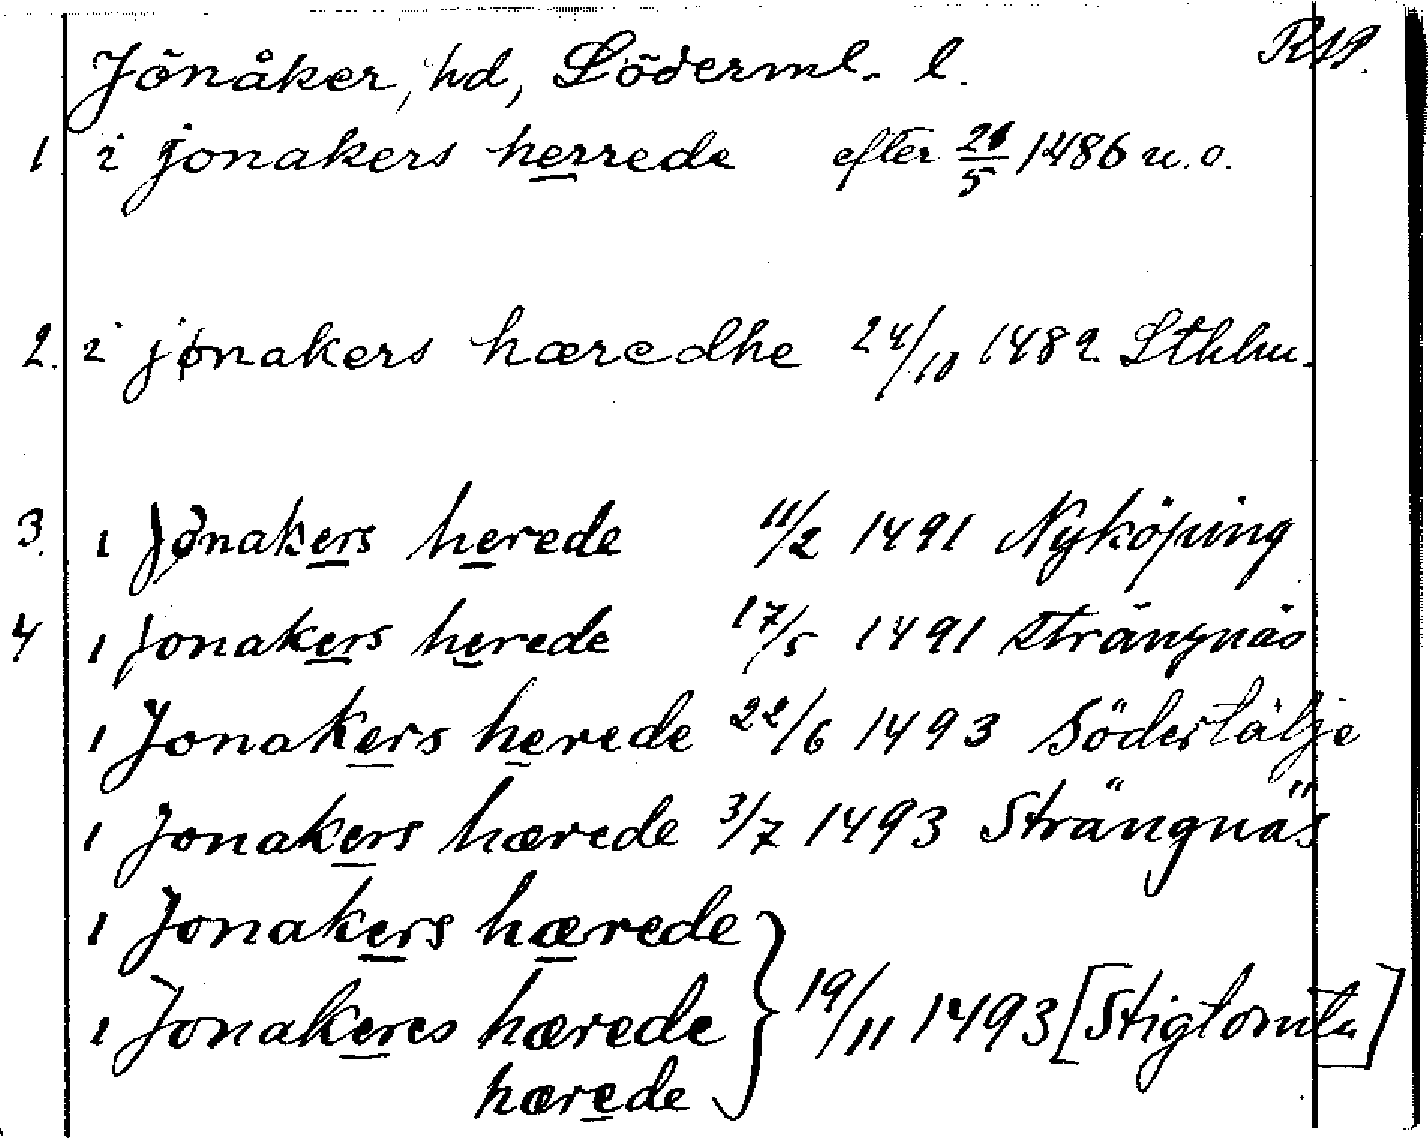 Jönåker, hd, Söderml. l. RAP.
1 i jonakers herrede efter 21/5 1486 u.o.
2. i jønakers hæredhe 24/10 1482 Sthlm.
3. i Jønakers herede 11/2 1491 Nyköping
4 i Jonakers herede 17/5 1491 Strängnäs
i Jonakers herede 22/6 1493 Södertälje
i Jonakers hærede 3/7 1493 Strängnäs
i Jonakers hærede
i Jonakeres hærede } 19/11 1493 [Stigtomta]
hærede